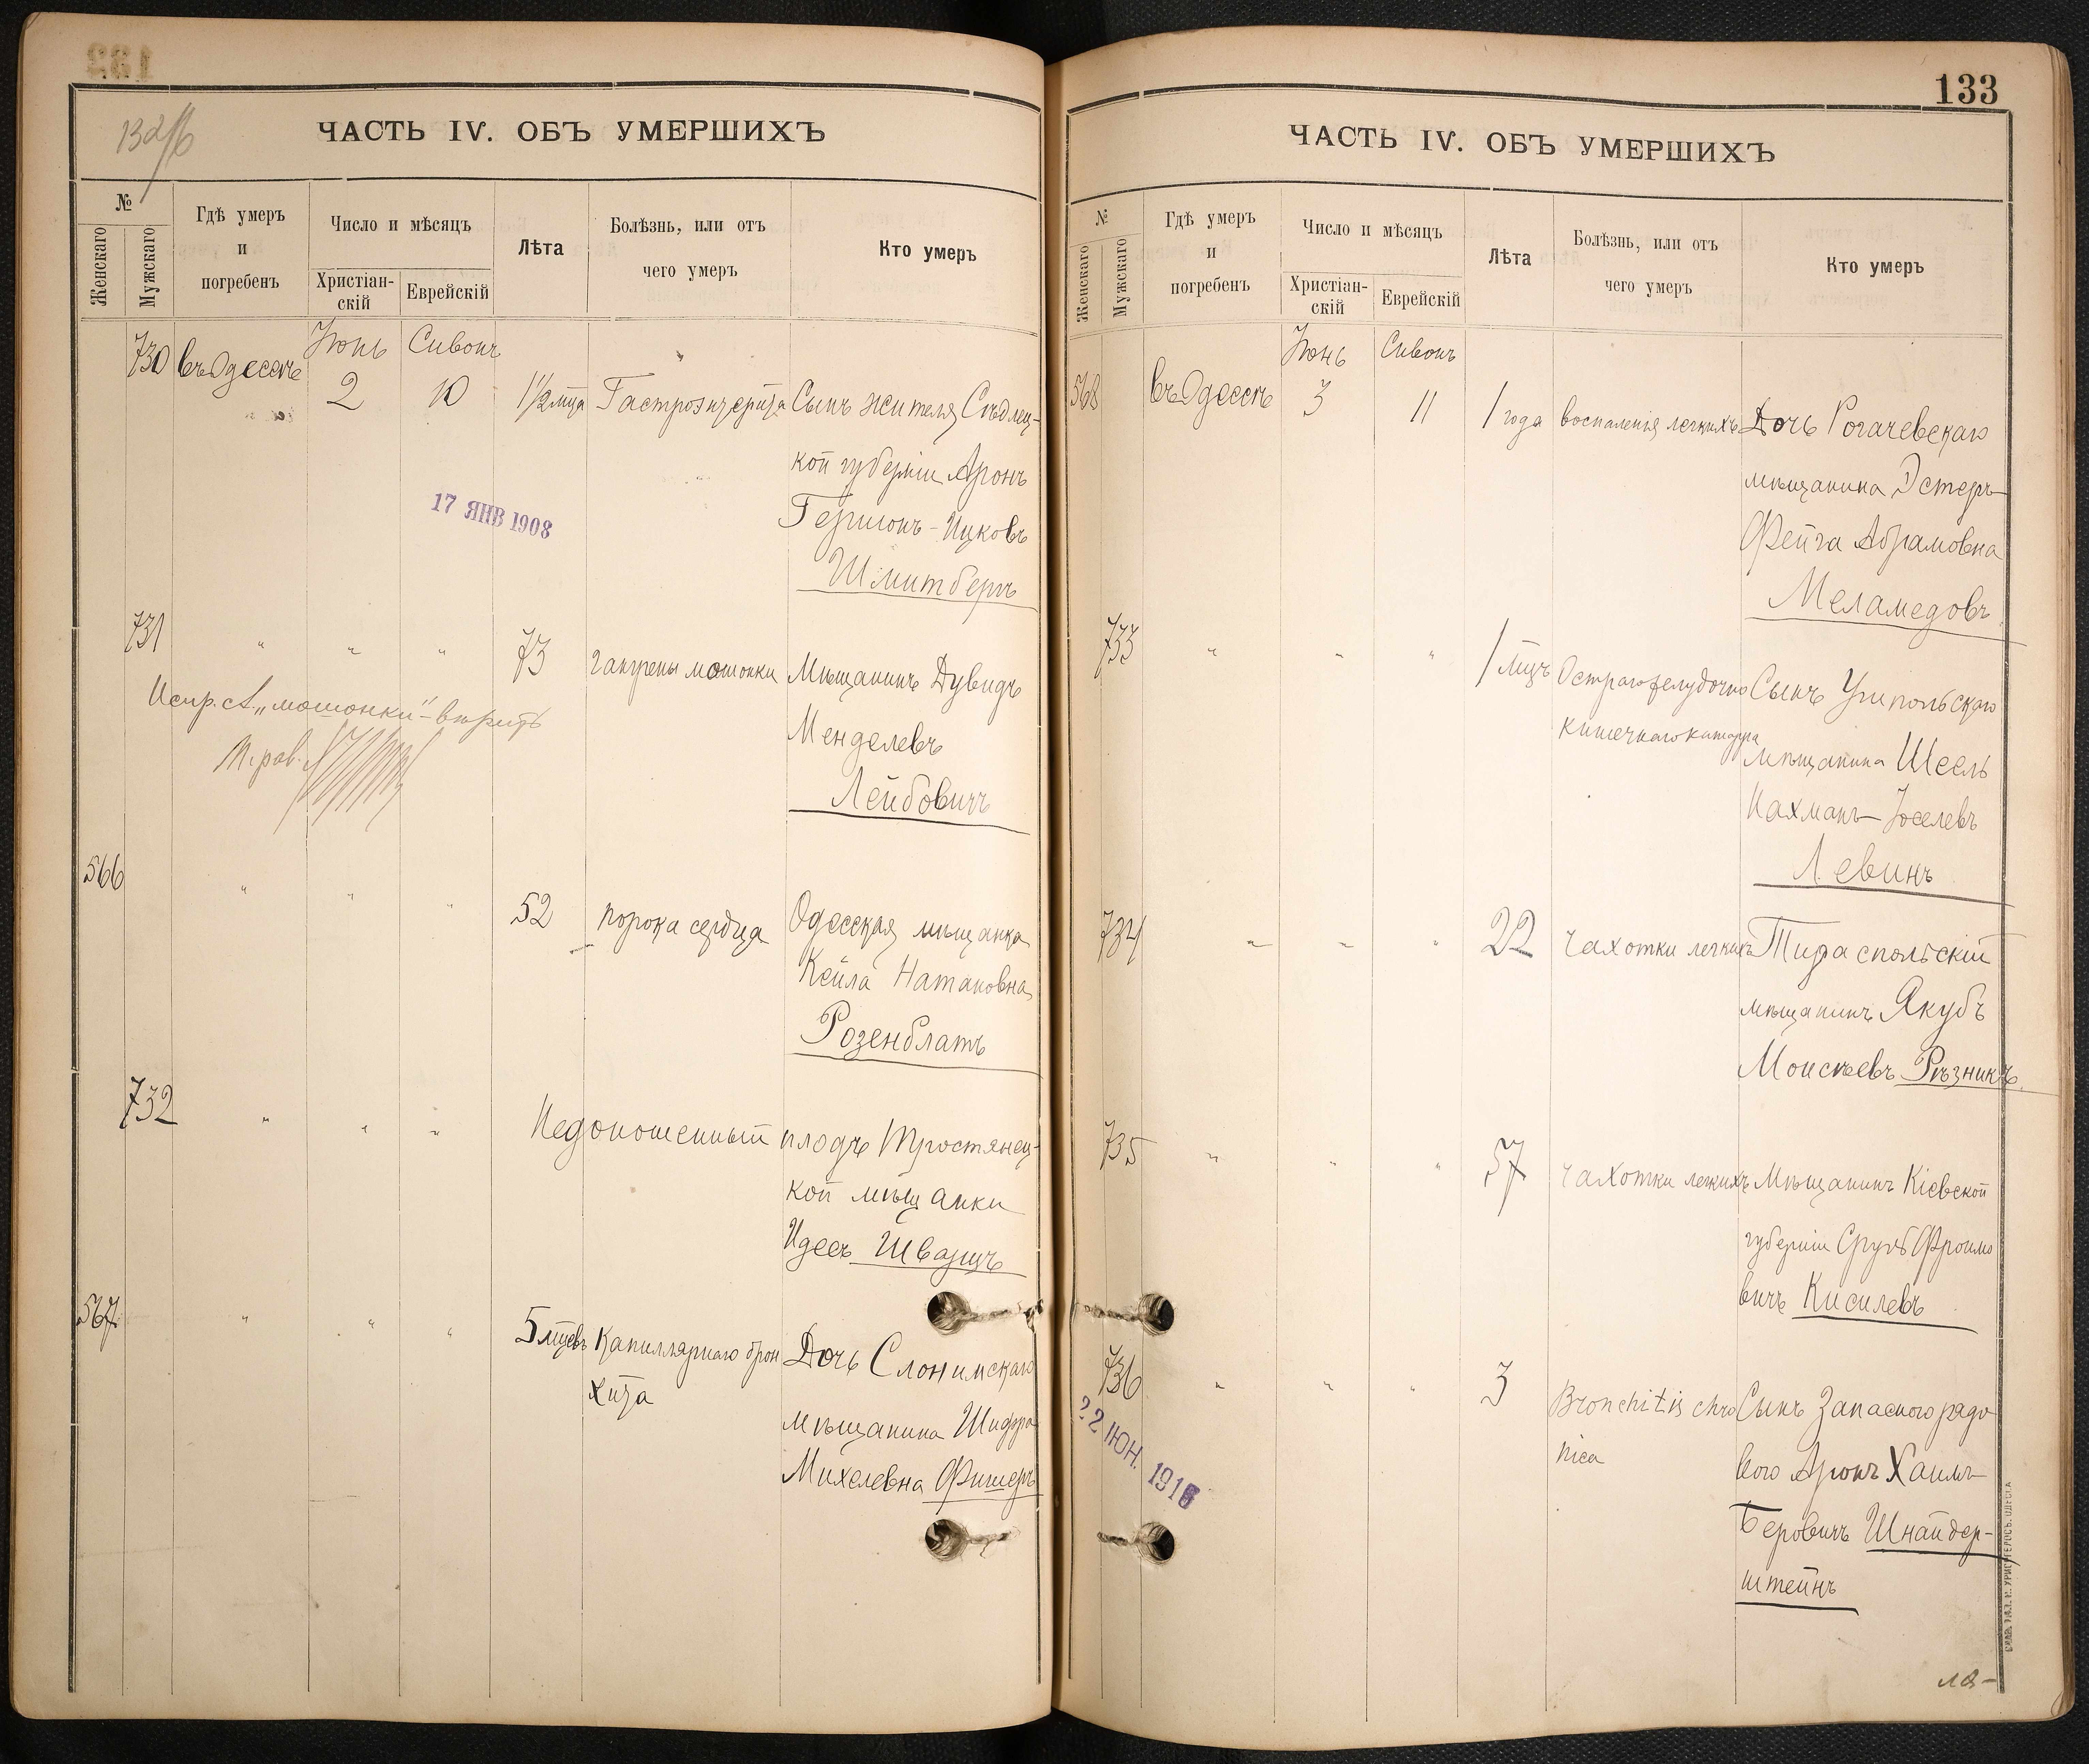 132/б
ЧАСТЬ IV. ОБЪ УМЕРШИХЪ
№
Женскаго
Мужскаго
Гдѣ умеръ
и
погребенъ
Число и мѣсяцъ
Христіан-
скій
Еврейскій
Лѣта
Болѣзнь, или отъ
чего умеръ
Кто умеръ
Іюнь Сивонъ
730 въ Одессѣ 2 10 1½ мца Гастроэнтерита Сынъ жителя Сѣдлец-
кой губерніи Аронъ
Гершонъ-Ицковъ
Шмитбергъ
17 ЯНВ 1908
731 " " " 73 гангрены мошонки Мѣщанинъ Дувидъ
Менделевъ
Лейбовичъ
Испр. "мошонки" - вѣрить
566 " " " 52 порока сердца Одесская мѣщанка
Кейла Натановна
Розенблатъ
732 " " " Недоношенный плодъ Тростянец-
кой мѣщанки
Идесъ Шварцъ
567 " " " 5 мцевъ Капиллярнаго брон
хита
Дочь Слонимскаго
мѣщанина Шифра
Михелевна Фишеръ
133
ЧАСТЬ IV. ОБЪ УМЕРШИХЪ
№
Женскаго
Мужскаго
Гдѣ умеръ
и
погребенъ
Число и мѣсяцъ
Христіан-
скій
Еврейскій
Лѣта
Болѣзнь, или отъ
чего умеръ
Кто умеръ
Іюнь Сивонъ
568 въ Одессѣ 3 11 1 года воспаленія легкихъ Дочь Рогачевскаго
мѣщанина Эстеръ-
Фейга Абрамовна
Меламедовъ
733 " " " 1 мцъ Остраго желудочно Сынъ Усипольскаго
кишечнаго катарра
мѣщанина Шеель
Нахманъ-Іоселевъ
Левинъ
734 " " " 22 Чахотки легкихъ Тираспольскій
мѣщанинъ Якубъ
Моисѣевъ Рѣзникъ
735 " " " 57 чахотки легкихъ Мѣщанинъ Кіевской
губерніи Сруль Фроимо
вичъ Кисилевъ
736 " " " 3 Bronchitis chro Сынъ Запаснаго рядо
nica
ваго Аронъ Хаимъ-
Беровичъ Шнайдер-
штейнъ
22 ІЮН. 191